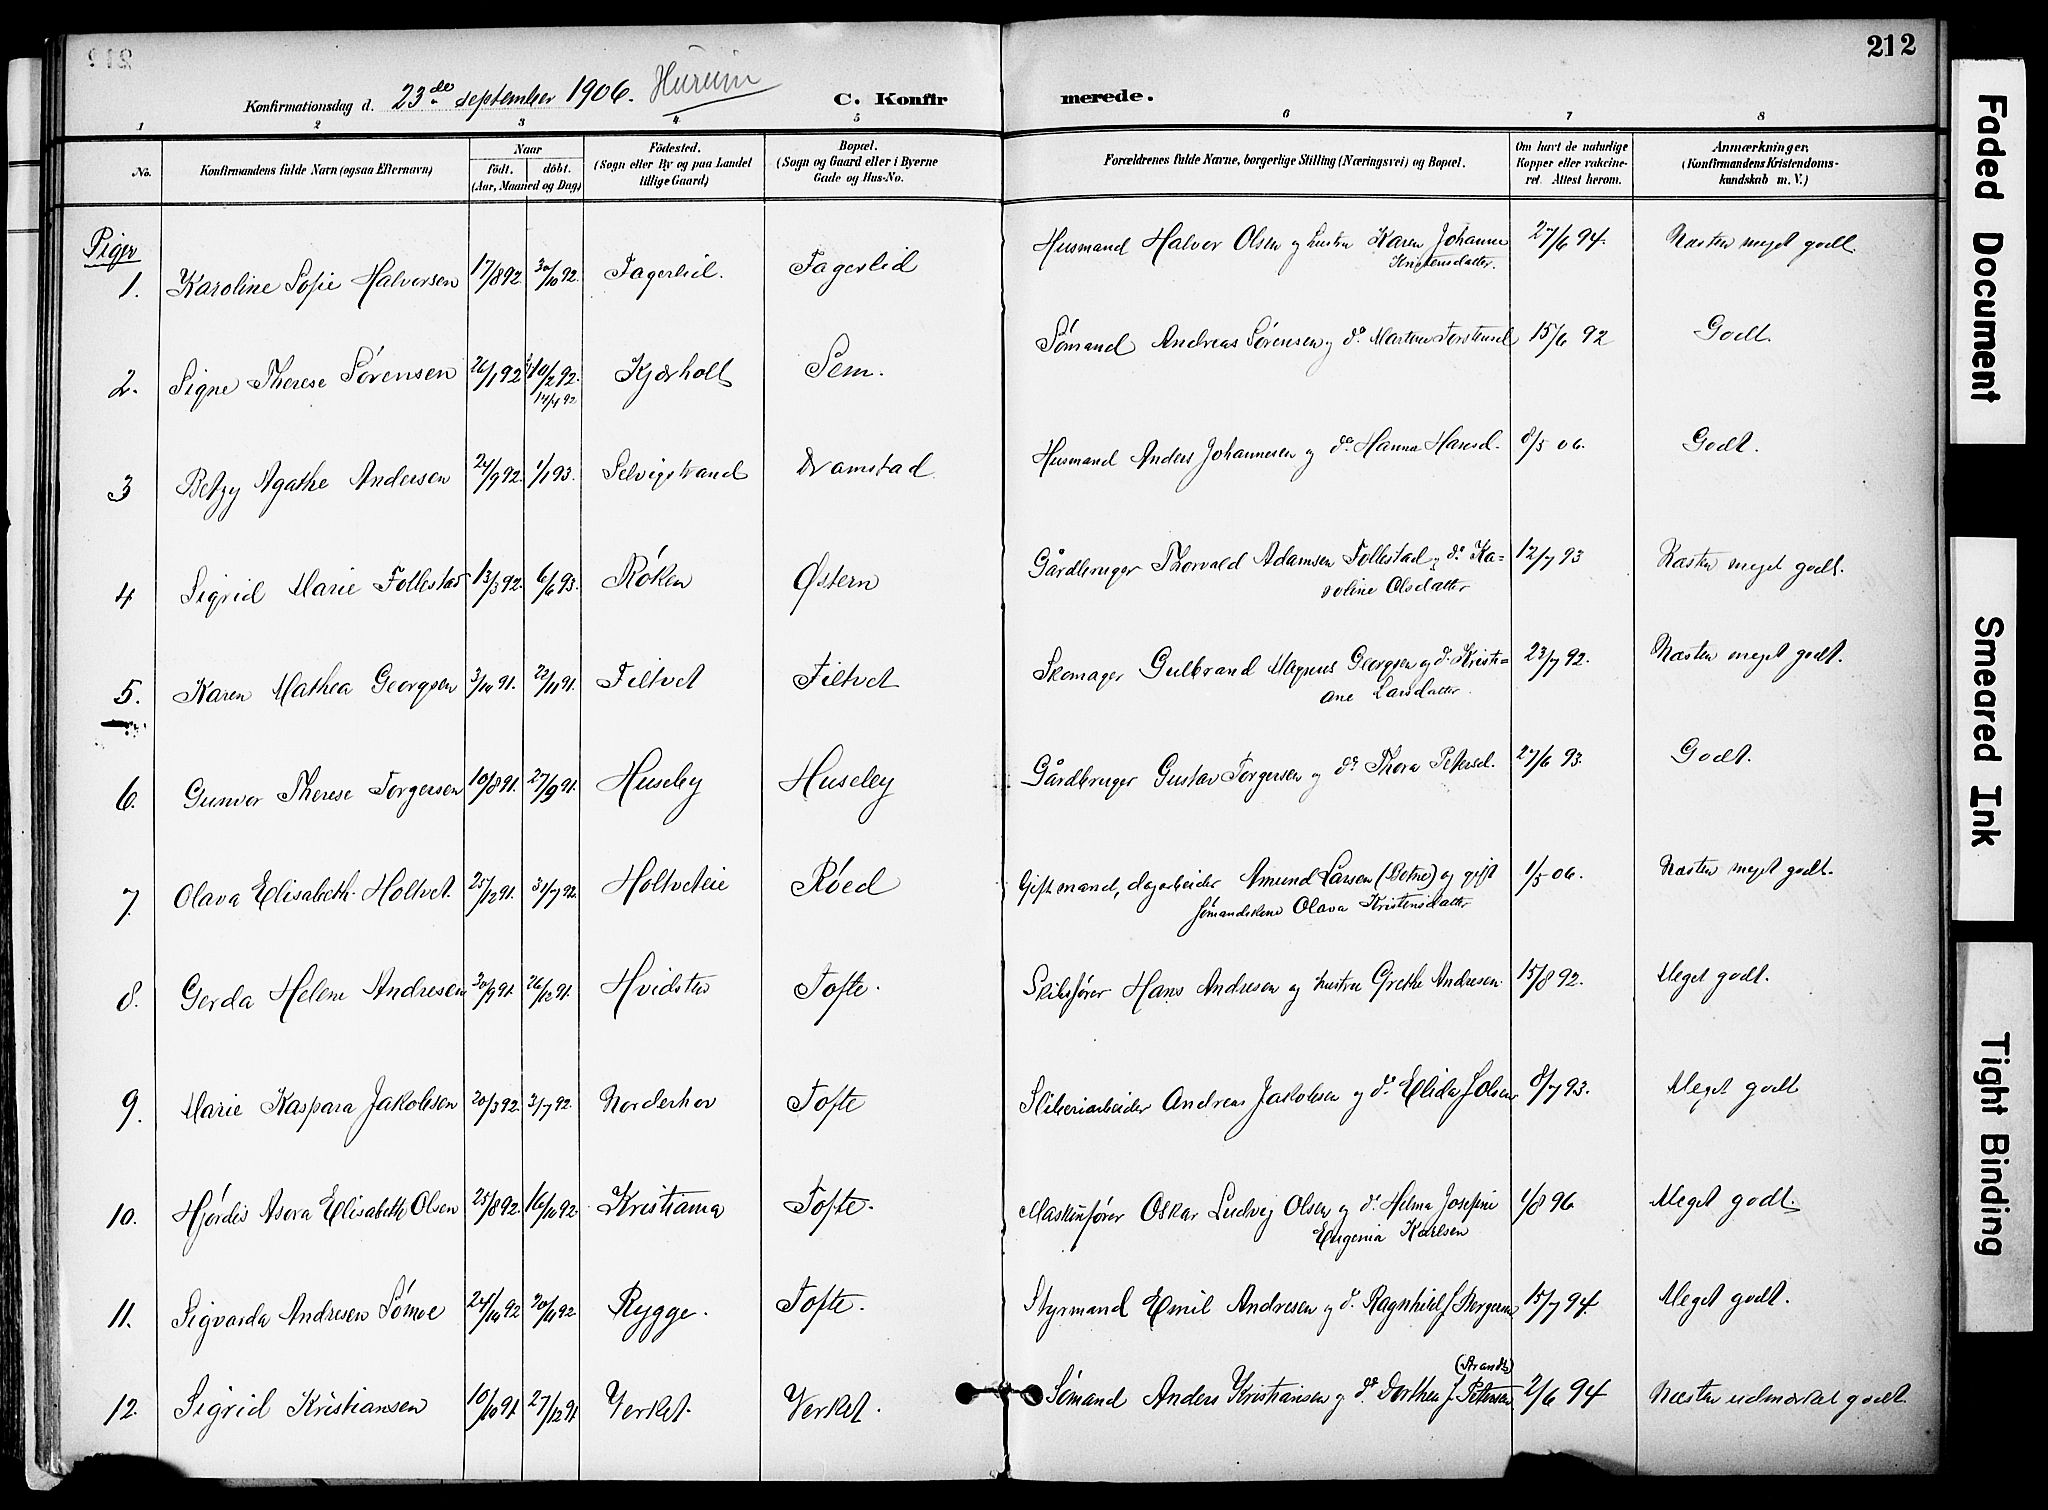 212
Konfirmationsdag d. 23de september 1906. Hurum
C. Konfirmerede.
1 2 3 4 5 6 7 8
No.
Konfirmandens fulde Navn (ogsaa Efternavn)
Naar
født. døbt.
(Aar, Maaned og Dag)
Fødested.
(Sogn eller By og paa Landet
tillige Gaard)
Bopæl.
(Sogn og Gaard eller i Byerne
Gade og Hus-No.
Forældrenes fulde Navne, borgerlige Stilling (Næringsvei) og Bopæl.
Om havt de naturlige
Kopper eller vakcine-
ret. Attest herom.
Anmærkninger.
(Konfirmandens Kristendoms-
kundskab m. V.)
Piger
1. Karoline Sofie Halvorsen 17/8 92. 30/10 92. Fagerlid. Fagerlid Husmand Halvor Olsen og hustru Karen Johanne 27/6 94. Næsten meget godt.
Kristensdatter.
2. Signe Therese Sørensen 26/1 92 10/2 92. Kjærholt Sem. Sømand Andreas Sørensen og do Martine Torstensd 15/6 92 Godt.
17/4 92
3 Betzy Agathe Andersen 24/9 92. 1/1 93. Selvigstrand Dramstad Husmand Anders Johannesen og do Hanna Hansd. 8/5 06. Godt.
4 Sigrid Marie Follestad 13/3 92. 6/6 93. Røken Østern Gårdbruger Thorvald Adamsen Follestad og do Ka- 12/7 93 Næsten meget godt.
roline Olsdatter
5. Karen Mathea Georgsen 3/10 91. 22/11 91. Filtvet Filtvet Skomager Gulbrand Magnus Georgsen og do Kristi- 23/7 92. Næsten meget godt.
ane Larsdatter.
6. Gunvor Therese Torgersen 10/8 91. 27/9 91. Huseby Huseby Gårdbruger Gustav Torgersen og do Thora Petersd. 27/6 93. Godt.
7. Olava Elisabeth Holtvet. 25/12 91. 31/7 92. Holtveteie Røed Gift mand, dagarbeider Amund Larsen (Tofte) og gift 1/5 06. Næsten meget godt.
sømandskone Olava Kristensdatter
8. Gerda Helene Andresen 30/9 91. 26/12 91. Hvidsten Tofte. Skibsfører Hans Andresen og hustru Grethe Andresen 15/8 92. Meget godt.
9. Marie Kaspara Jakobsen 20/3 92. 3/7 92. Norderhov Tofte Sliberiarbeider Andreas Jakobsen og do Elida J. Olsen 8/7 93. Meget godt
10. Hjørdis Asora Elisabeth Olsen 25/8 92. 16/10 92. Kristiania Tofte. Maskinfører Oskar Ludvig Olsen og do Helma Josefine 1/8 96. Meget godt.
Eugenia Karlsen
11. Sigvarda Andresen Sømoe 24/10 92 20/11 92 Rygge. Tofte. Styrmand Emil Andresen og do Ragnhild f. Borgersen 15/7 94. Meget godt.
(Strandb)
12. Sigrid Kristiansen 10/10 91. 27/12 91. Verket. Verket. Sømand Anders Kristiansen og do Dorthea f. Petersen 2/6 94 Næsten udmærket godt.
Faded Document
Smeared Ink
Tight Binding